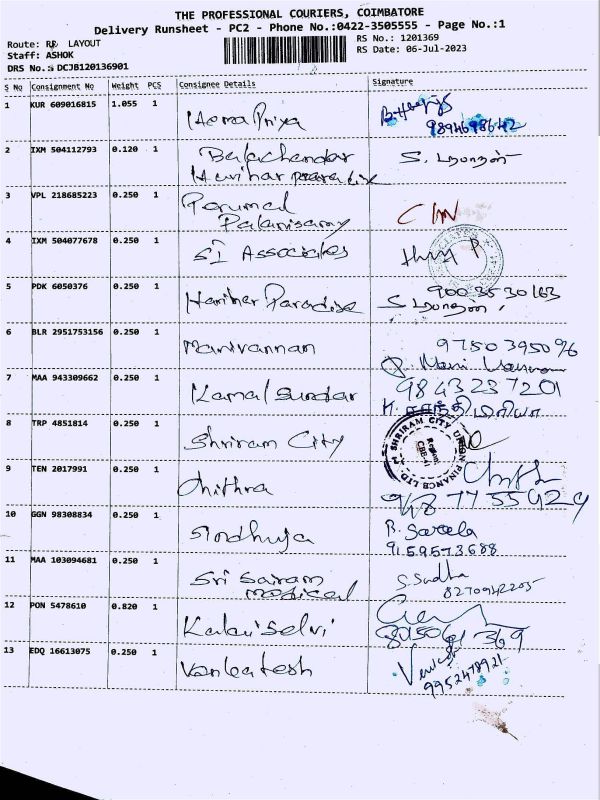 THE PROFESSIONAL COURIERS, COIMBATORE
Delivery Runsheet - PC2 - Phone No.:0422-3505555 - Page No.:1
Route: RR LAYOUT RS No.: 1201369
Staff: ASHOK RS Date: 06-Jul-2023
DRS No.: DCJB120136901
S No Consignment No Weight PCS Consignee Details Signature
1 KUR 609016815 1.055 1 Hema Priya
9894698642
2 IXM 504112793 0.120 1 Balachandar
Harihar paradise
3 VPL 218685223 0.250 1 Perumal
Palanisamy
4 IXM 504077678 0.250 1 SI Associates
5 PDK 6050376 0.250 1 Harihar Paradise 9003530163
6 BLR 2951753156 0.250 1 Manivannan 9750395096
7 MAA 943309662 0.250 1 Kamal Sundar 9843237201
8 TRP 4851814 0.250 1 Shriram City SHRIRAM CITY UNION FINANCE LTD.
9 TEN 2017991 0.250 1 Chithra
10 GGN 98308834 0.250 1 Sindhuja B. Sarala
9159573688
11 MAA 103094681 0.250 1 Sri Sairam S. Sudha
medical 8270942205
12 PON 5478610 0.820 1 Kalai Selvi
13 EDQ 16613075 0.250 1 Venkatesh
9952478921